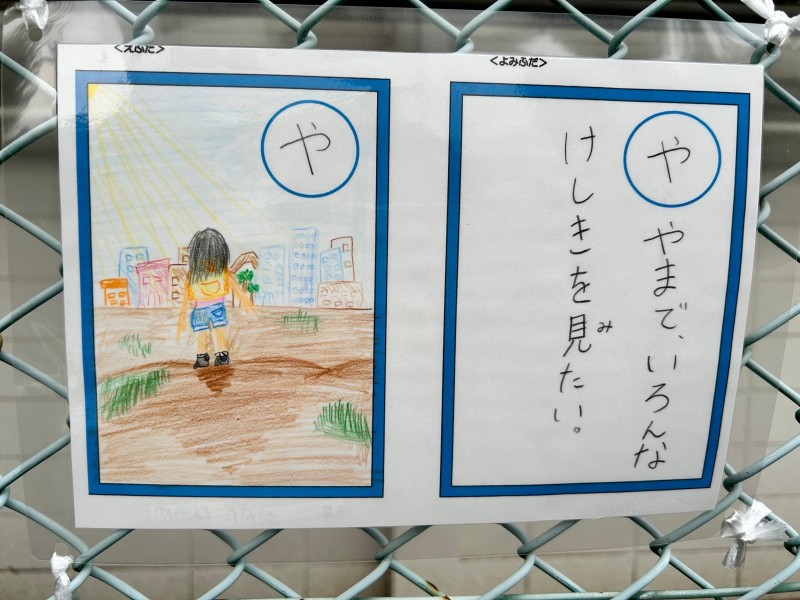 <えふだ>
や
<よみふだ>
や
やまで、いろんな
けしきを見たい。
み